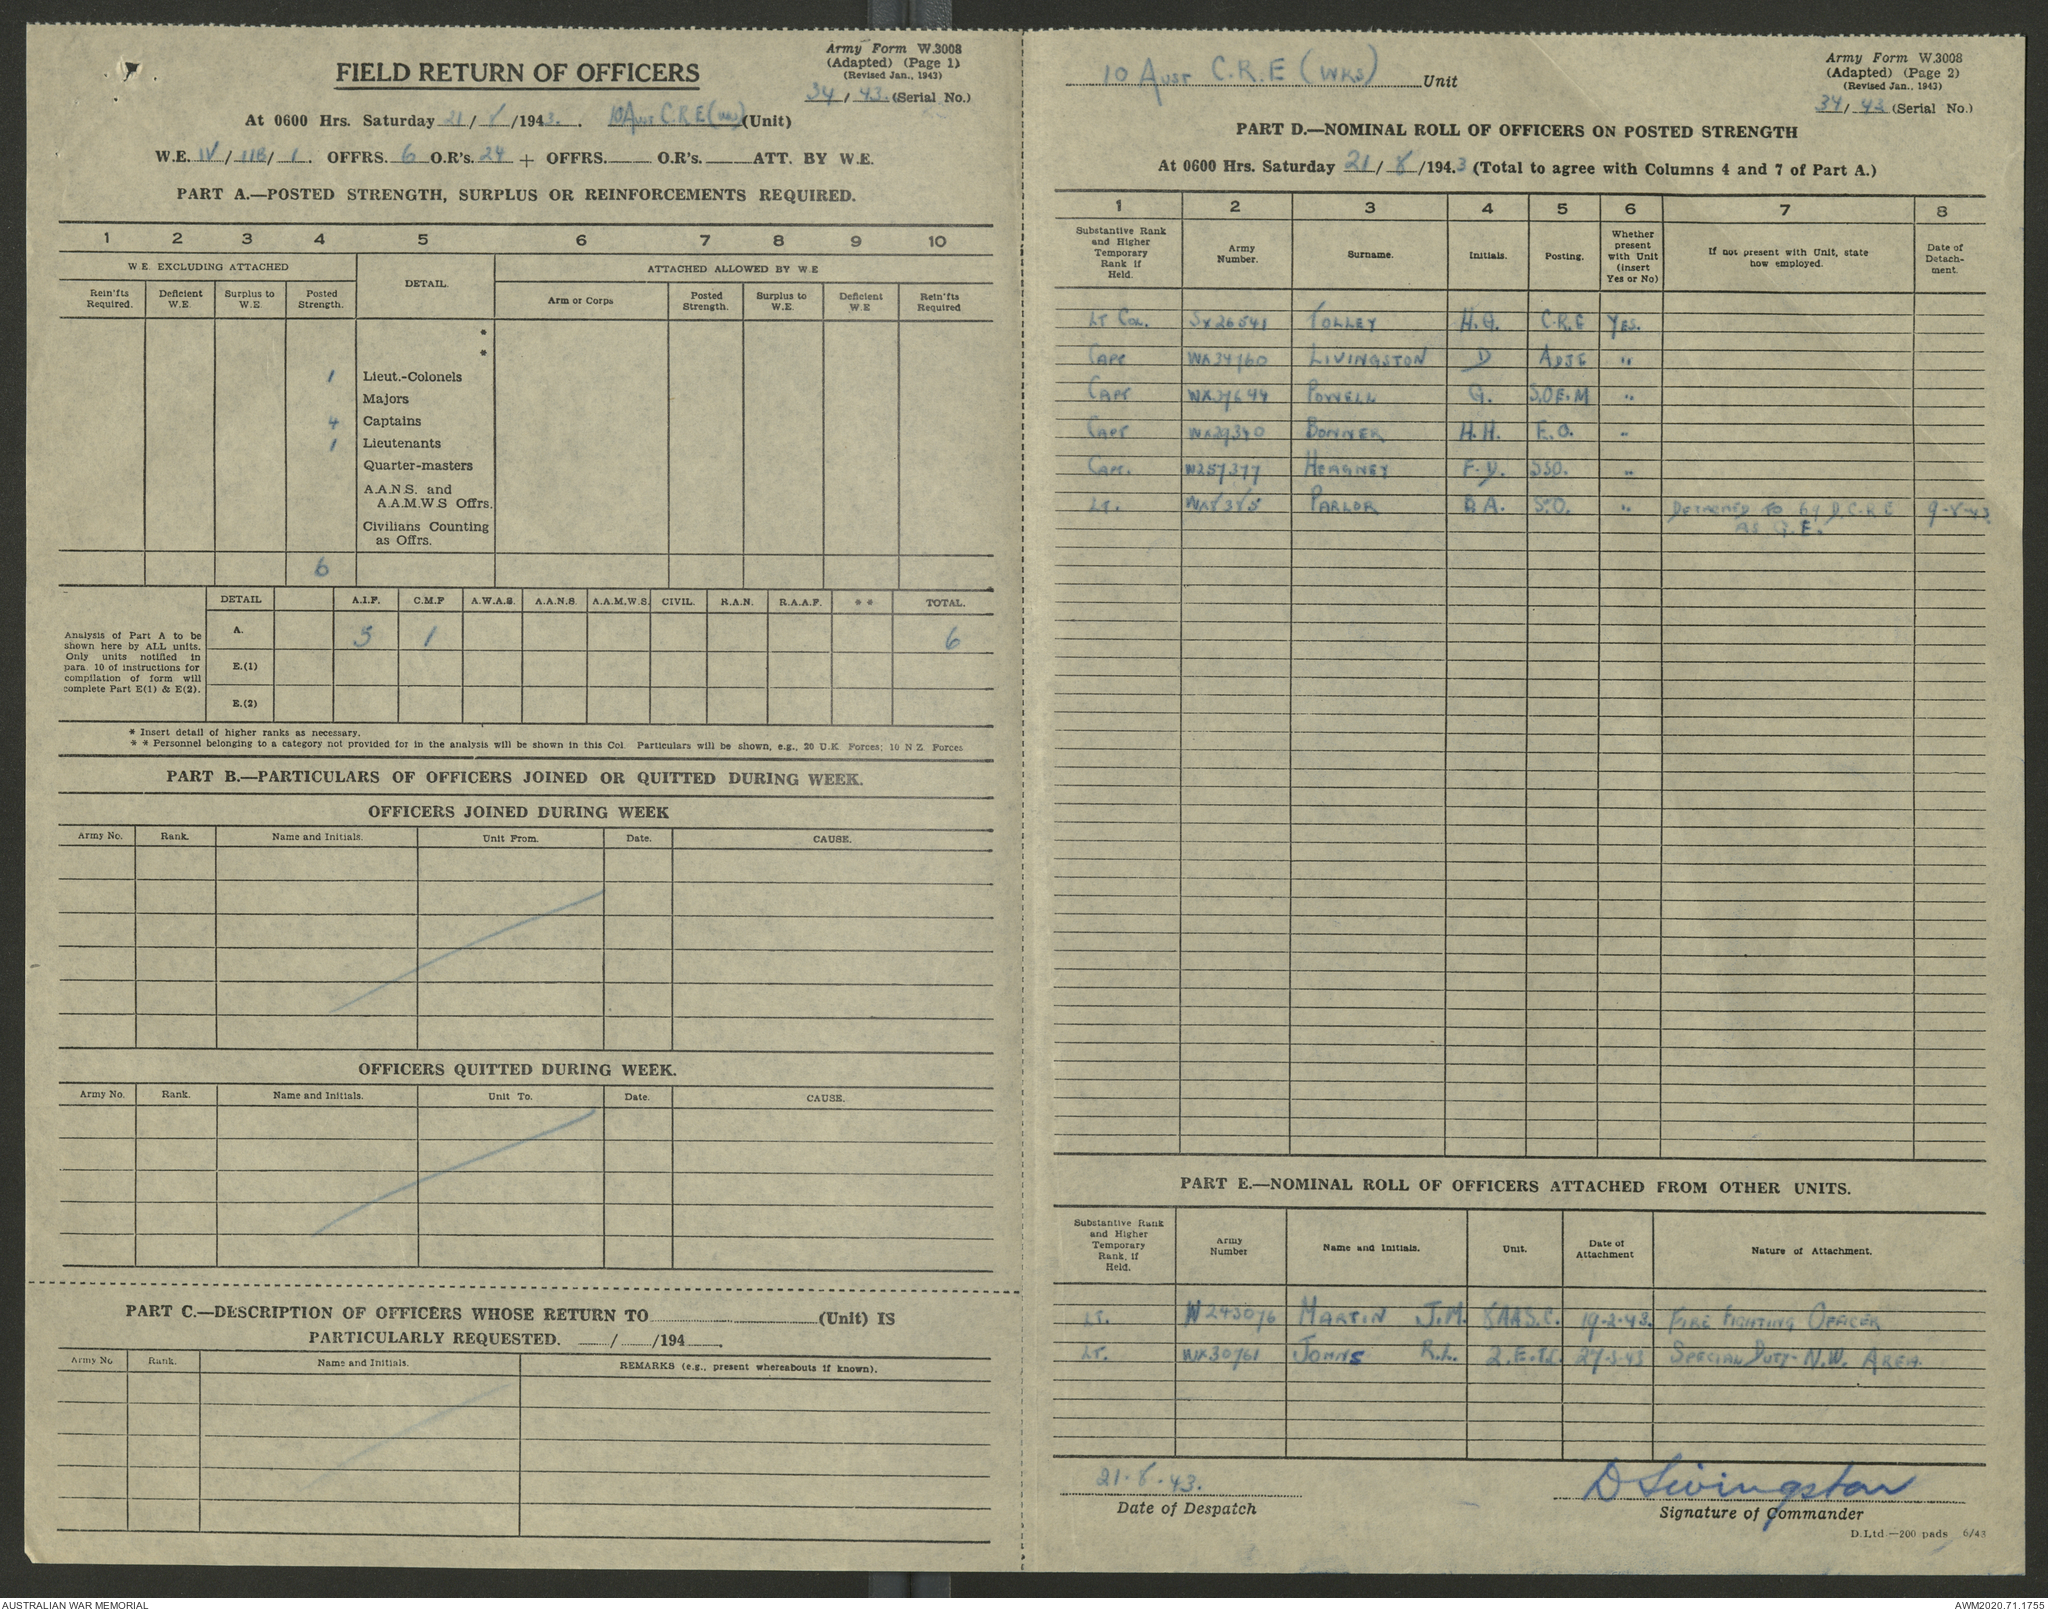 Army Form W.3008
(Adapted) (Page 1)
(Revised Jan., 1943)
34/43 (Serial No.)
FIELD RETURN OF OFFICERS
At 0600 Hrs. Saturday 21/8/1943. 10 Aust C.R.E (Wks) (Unit)
W.E. IV/11B/1. OFFRS. 6 O.R's. 24 + OFFRS. O.R's. ATT. BY W.E.
PART A.—POSTED STRENGTH, SURPLUS OR REINFORCEMENTS REQUIRED.
1 2 3 4 5 6 7 8 9 10
W.E. EXCLUDING ATTACHED DETAIL. ATTACHED ALLOWED BY W.E
Rein'fts Required. Deficient W.E. Surplus to W.E. Posted Strength. Arm or Corps Posted Strength. Surplus to W.E. Deficient W.E Rein'fts Required
*
*
1 Lieut.-Colonels
Majors
4 Captains
1 Lieutenants
Quarter-masters
A.A.N.S. and
A.A.M.W.S Offrs.
Civilians Counting
as Offrs.
6
Analysis of Part A to be shown here by ALL units. Only units notified in para. 10 of instructions for compilation of form will complete Part E(1) & E(2).
DETAIL A.I.F. C.M.F A.W.A.S. A.A.N.S. A.A.M.W.S. CIVIL. R.A.N. R.A.A.F. * * TOTAL.
A. 5 1 6
E.(1)
E.(2)
* Insert detail of higher ranks as necessary.
* * Personnel belonging to a category not provided for in the analysis will be shown in this Col. Particulars will be shown, e.g., 20 U.K. Forces; 10 N Z Forces
PART B.—PARTICULARS OF OFFICERS JOINED OR QUITTED DURING WEEK.
OFFICERS JOINED DURING WEEK
Army No. Rank. Name and Initials. Unit From. Date. CAUSE.
OFFICERS QUITTED DURING WEEK.
Army No. Rank. Name and Initials. Unit To. Date. CAUSE.
PART C.—DESCRIPTION OF OFFICERS WHOSE RETURN TO (Unit) IS
PARTICULARLY REQUESTED. / /194 .
Army No Rank. Name and Initials. REMARKS (e.g., present whereabouts if known).
10 Aust C.R.E (WKS) Unit
Army Form W.3008
(Adapted) (Page 2)
(Revised Jan., 1943)
34/43 (Serial No.)
PART D.—NOMINAL ROLL OF OFFICERS ON POSTED STRENGTH
At 0600 Hrs. Saturday 21/8/1943 (Total to agree with Columns 4 and 7 of Part A.)
1 2 3 4 5 6 7 8
Substantive Rank and Higher Temporary Rank if Held. Army Number. Surname. Initials. Posting. Whether present with Unit (insert Yes or No) If not present with Unit, state how employed. Date of Detachment.
Lt Col. SX26541 TOLLEY H.G. C.R.E YES.
Capt WX34160 LIVINGSTON D ADJT "
Capt POWELL G. S.O E.M "
Capt BONNER H.H. E.O. "
Capt. W257377 HEAGNEY F.D. "
Lt. PARLOR B.A. S.O. " DETACHED TO 69 D.C.R.E 9-8-43
AS G.E.
PART E.—NOMINAL ROLL OF OFFICERS ATTACHED FROM OTHER UNITS.
Substantive Rank and Higher Temporary Rank, if Held. Army Number Name and Initials. Unit. Date of Attachment Nature of Attachment.
Lt. W243076 MARTIN J.M. 19-2-43. FIRE FIGHTING OFFICER
Lt. WX30761 JOHNS R.L. SPECIAL DUTY- N.W. AREA.
21.8.43.
Date of Despatch
D Livingston
Signature of Commander
D.Ltd.—200 pads 6/43
AUSTRALIAN WAR MEMORIAL
AWM2020.71.1755